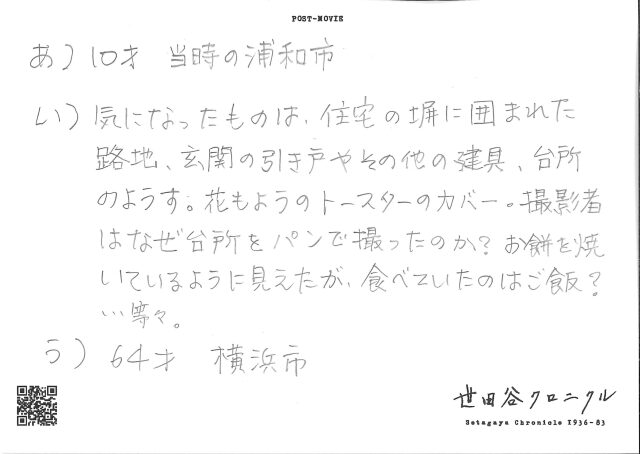 POST-MOVIE
あ) 10才 当時の浦和市
い) 気になったものは、住宅の塀に囲まれた
路地、玄関の引き戸やその他の建具、台所
のようす。花もようのトースターのカバー。撮影者
はなぜ台所をパンで撮ったのか? お餅を焼
いているように見えたが、食べていたのはご飯?
…等々。
う) 64才 横浜市
世田谷クロニクル
Setagaya Chronicle 1936-83